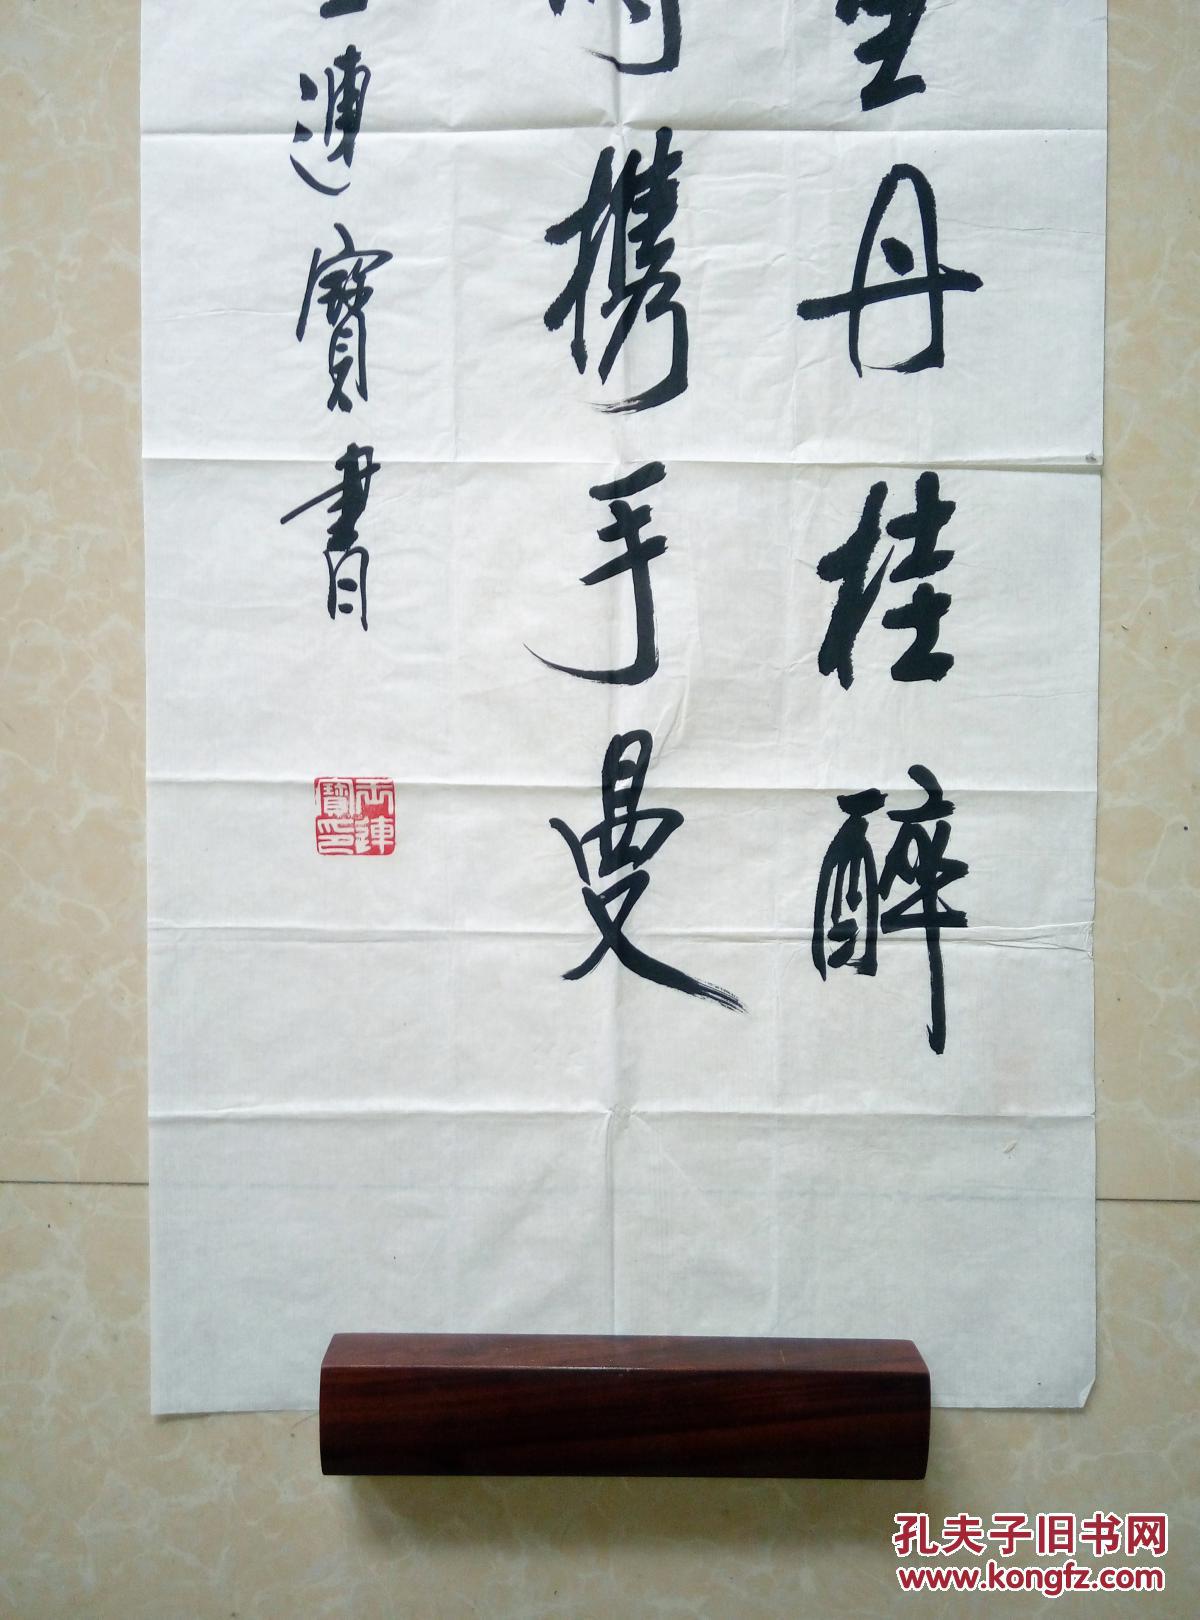 丹桂醉
携手曼
連寶書
王連寶印
孔夫子旧书网
www.kongfz.com